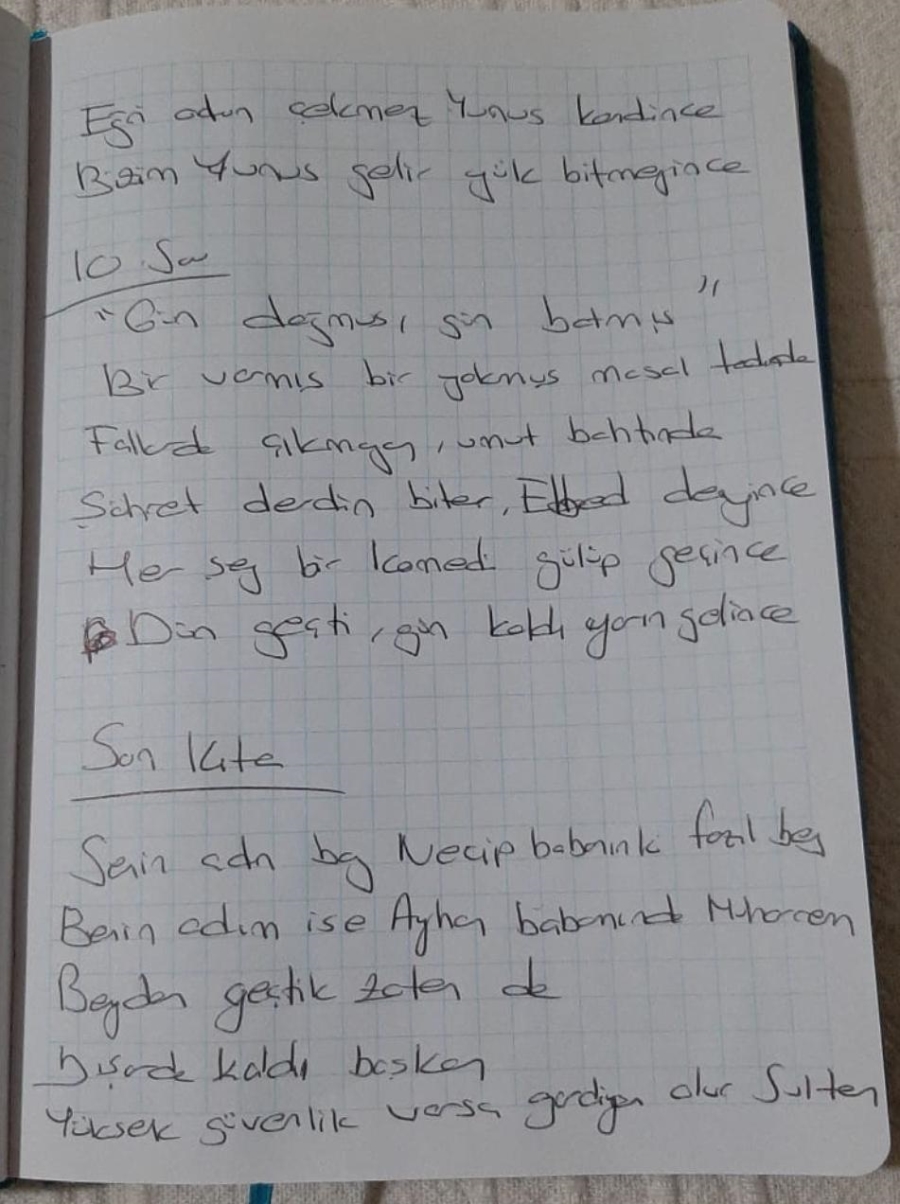 Eğri odun çekmez Yunus kendince
Bizim Yunus gelir yük bitmeyince
10 Sa
"Gün doğmuş, gün batmış"
Bir varmış bir yokmuş masal tadında
Falkıda çıkmayan, umut bahtında
Şöhret derdin biter, Elbad deyince
Her şey bir komedi gülüp geçince
Dün geçti, gün kaldı yarın gelince
Son Kıta
Senin adın bay Necip babanınki fazıl bey
Benim adım ise Ayhan babanınd Muharrem
Beyden geçtik zaten de
Dışarda kaldı başkan
Yüksek güvenlik varsa gardiyan olur Sultan